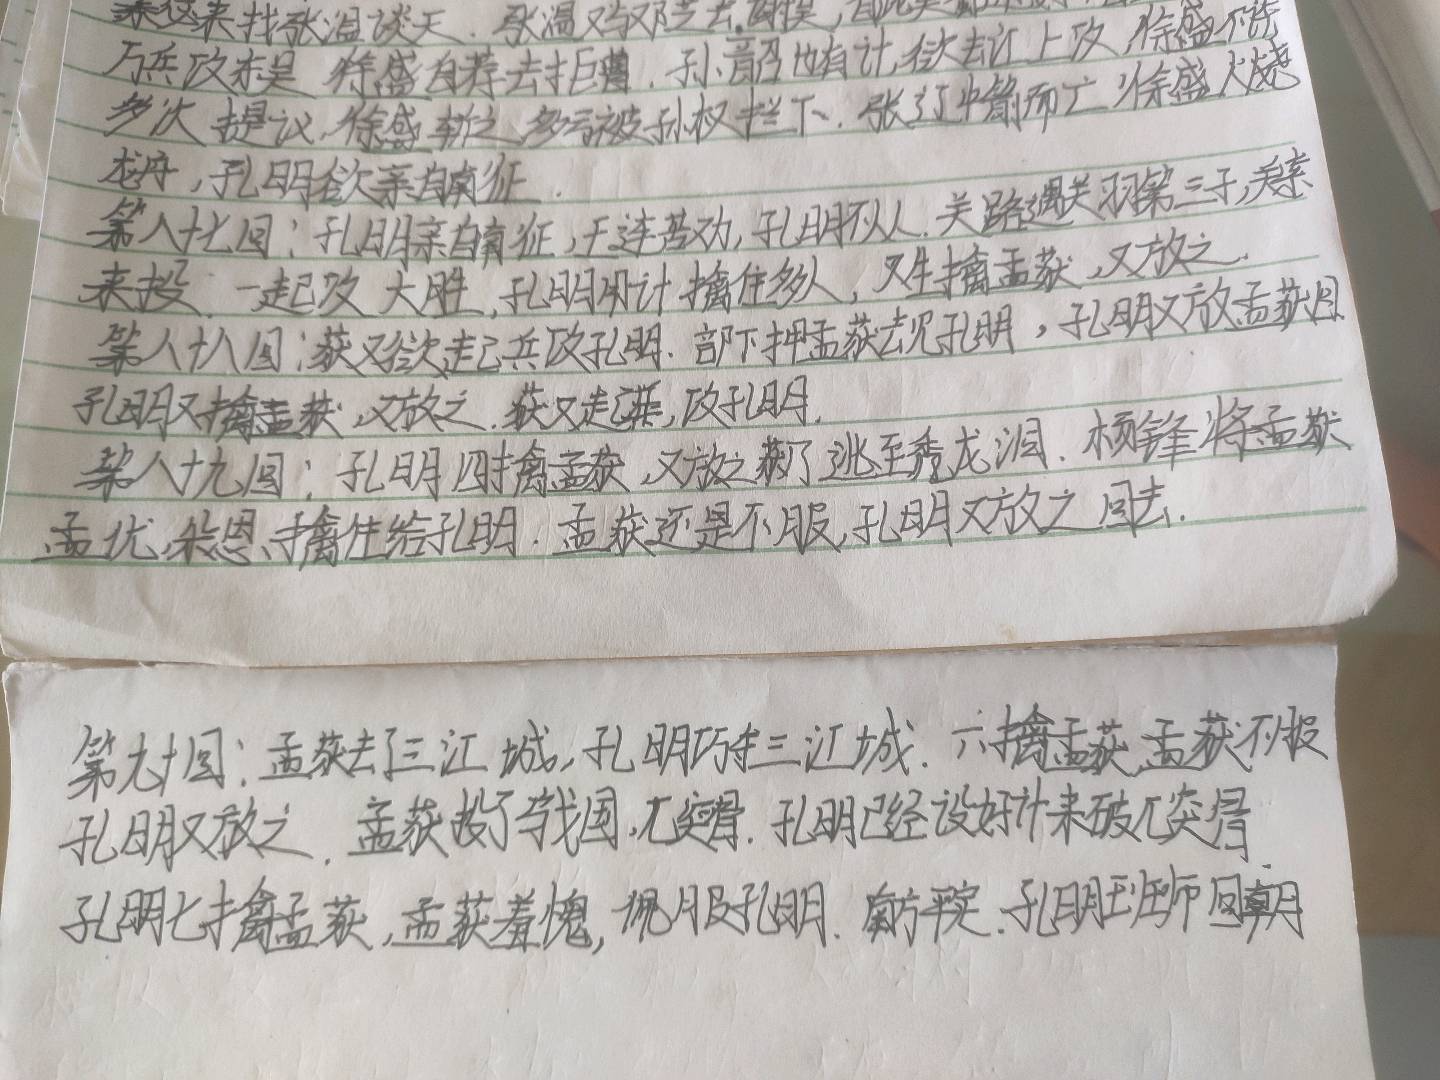 来找张温谈天.张温又与邓芝去
万兵攻东吴 徐盛自荐去拒曹.孙韶也有计,欲去江上攻,徐盛不许
多次提议,徐盛斩之 多亏被孙权拦下.张辽中箭而亡 徐盛火烧
龙舟,孔明欲亲自南征.
第八十七回:孔明亲自南征,王连苦劝,孔明不从.关路遇关羽第三子,关索
来投.一起攻 大胜,孔明用计擒住多人,又生擒孟获,又放之.
第八十八回:获又欲起兵攻孔明.部下押孟获去见孔明,孔明又放孟获回
孔明又擒孟获,又放之.获又起兵,攻孔明.
第八十九回:孔明四擒孟获,又放之获了逃至秃龙洞.杨锋将孟获
孟优,朵思,擒住给孔明.孟获还是不服,孔明又放之回去.
第九十回:孟获去了三江城,孔明巧夺三江城.六擒孟获,孟获不服
孔明又放之.孟获投了乌戈国,兀突骨.孔明已经设好计来破兀突骨.
孔明七擒孟获,孟获羞愧,佩服孔明.南方平定.孔明班师回朝